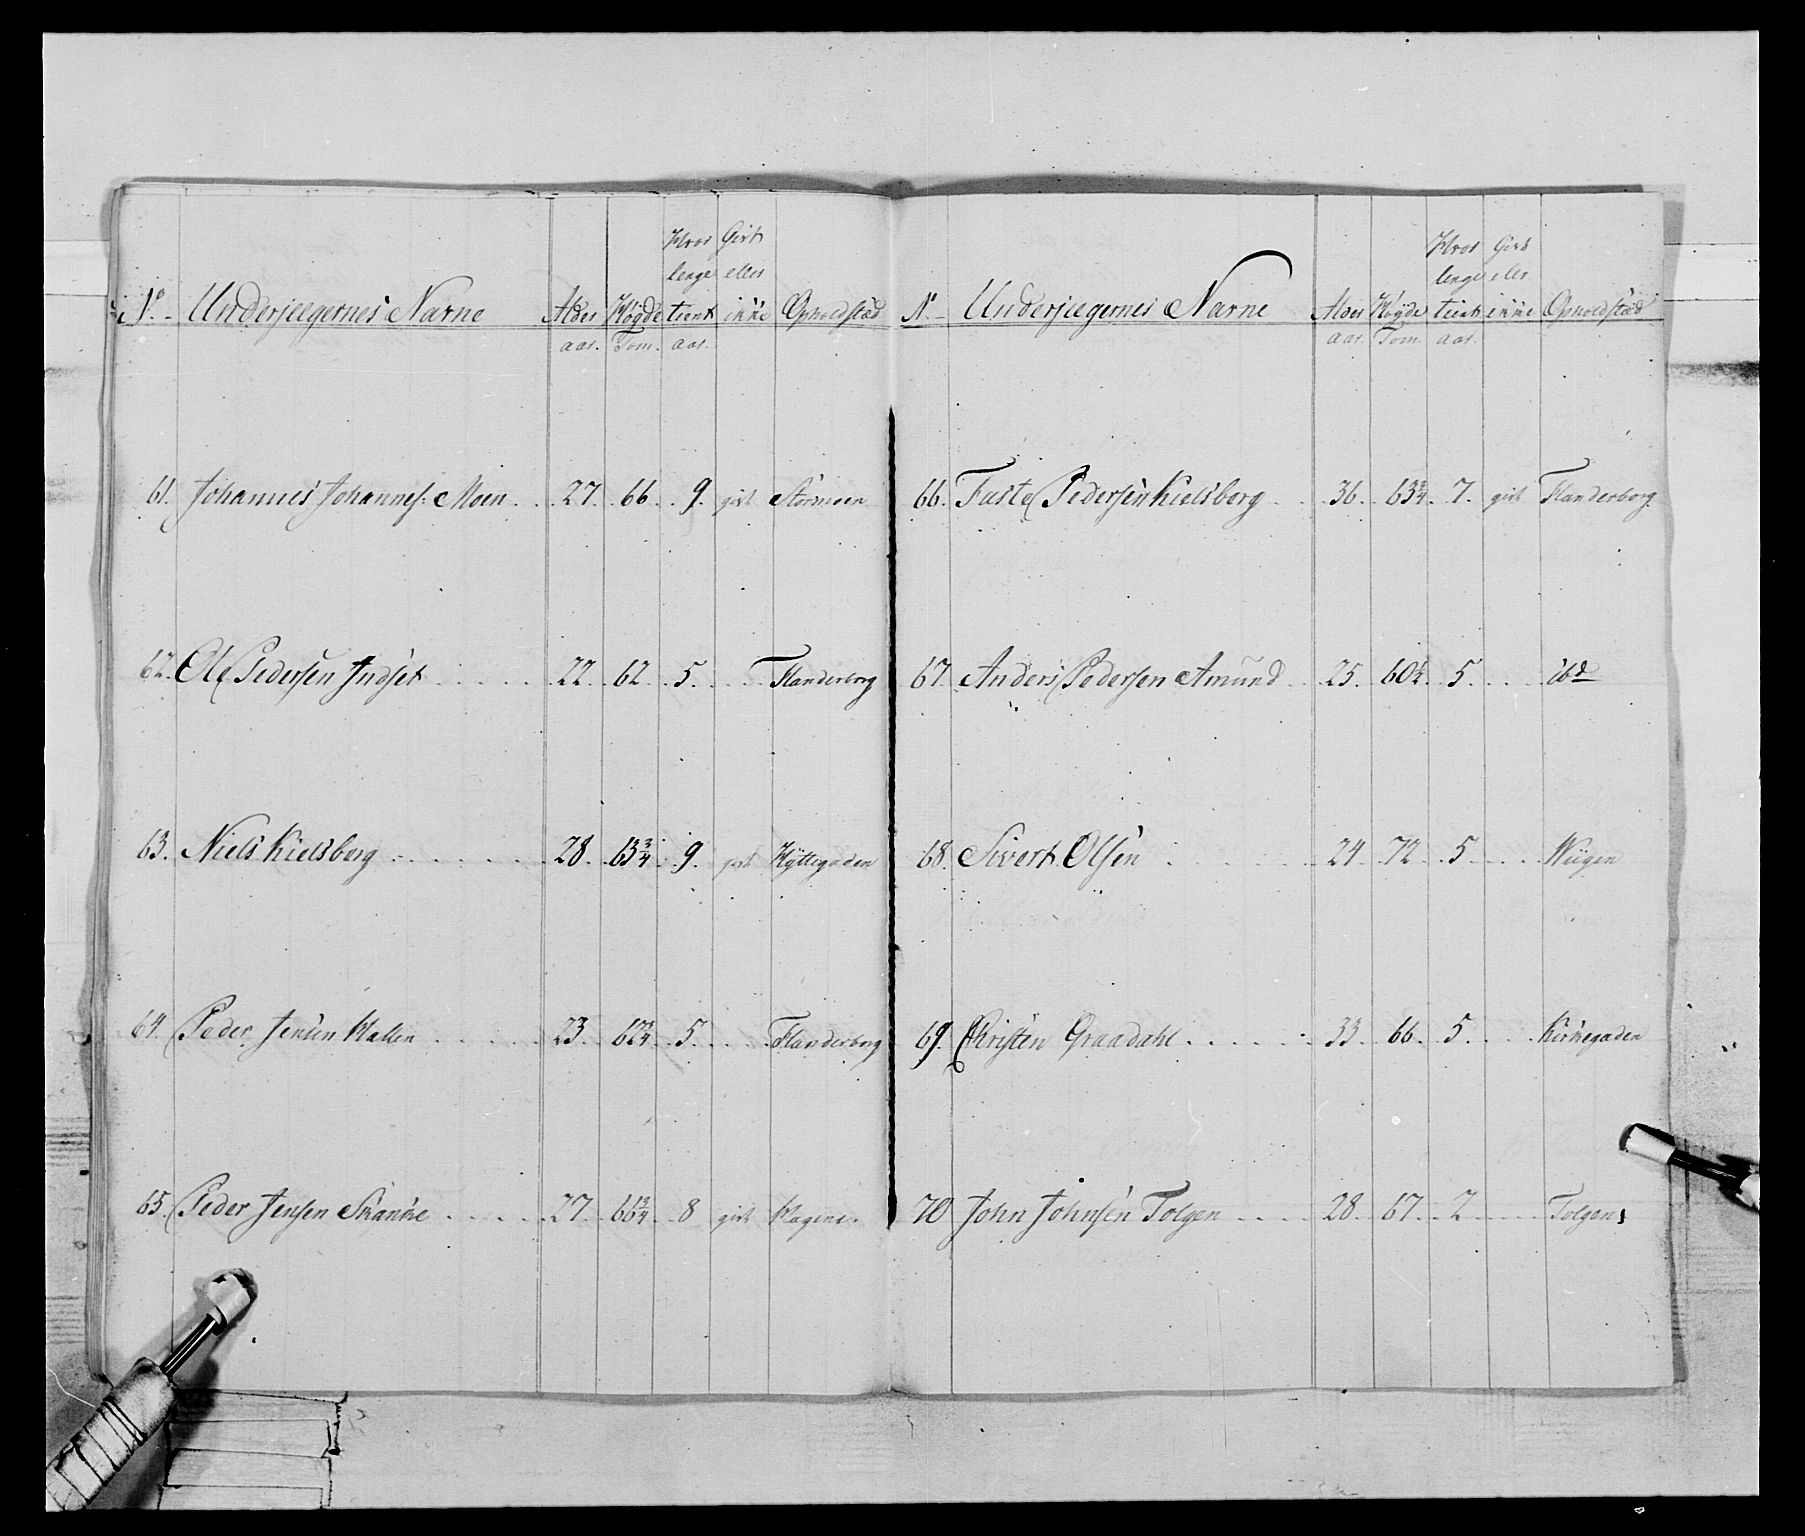 No. Underjægernes Navne Alder Høyde Hvor lenge tient Givt eller ikke Opholdstæd
aar. Tom. aar.
61. Johannes Johannes: Moen . . 27. 66. 9. givt Stormoen
62. Ole Pedersen Indset . . . . . 22. 62. 5. . . Flanderborg
63. Niels Kielsberg . . . . . . 28. 63 3/4 9. givt Hyttegaden
64. Peder Jensen Hallen . . . . . 23. 62 3/4 5. . . Flanderborg
65. Peder Jensen Skanke . . . . . 27. 66 3/4 8 givt Hagene.
No. Underjægernes Navne Alder Høyde Hvor lenge tient Givt eller ikke Opholdstæd
aar. Tom. aar.
66. Faste Pedersen Kielsberg . . 36. 63 3/4 7. givt Flanderborg.
67. Anders Pedersen Amund . . 25. 60 1/4 5. . . . ibd
68. Sivert Olsen . . . . . 24. 72. 5. . . . Wiigen
69. Christen Graadahl . . . . . . 33. 66. 5. . . . Kirkegaden
70 John Johnsen Tolgen . . . . 28. 67. 2. . . . Tolgen